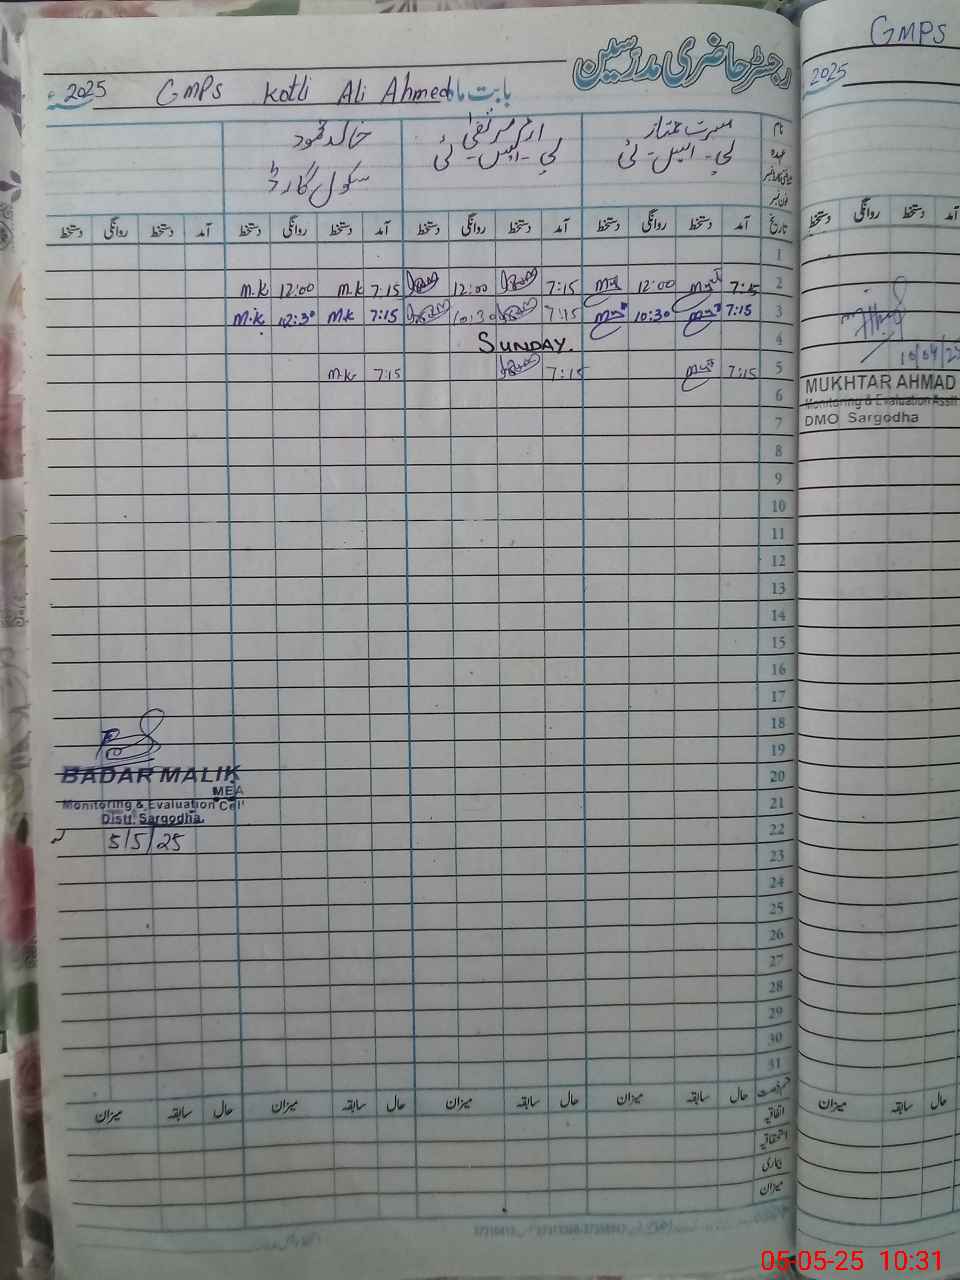 رجسٹر حاضری مدرسین
بابت ماہ GMPS Kotli Ali Ahmed 2025ء
نام مسرت ممتاز ارم مرتضیٰ خالد محمود
عہدہ پی۔ ایس۔ ٹی پی۔ ایس۔ ٹی سکول گارڈ
فون نمبر
تاریخ آمد دستخط روانگی دستخط آمد دستخط روانگی دستخط آمد دستخط روانگی دستخط آمد دستخط روانگی دستخط
1
2 7:15 12:00 7:15 12:00 7:15 M.K 12:00 M.K
3 7:15 10:30 7:15 10:30 7:15 M.K 12:30 M.K
4 SUNDAY.
5 7:15 7:15 7:15 M.K
6
7
8
9
10
11
12
13
14
15
16
17
18
19
20
21
22
23
24
25
26
27
28
29
30
31
BADAR MALIK
MEA
Monitoring & Evaluation Cell
Distt. Sargodha.
5/5/25
رخصت حال سابقہ میزان حال سابقہ میزان حال سابقہ میزان حال سابقہ میزان
اتفاقیہ
استحقاقیہ
بیماری
میزان
GMPS
2025
آمد دستخط روانگی دستخط
MUKHTAR AHMAD
Monitoring & Evaluation Asstt
DMO Sargodha
حال سابقہ میزان
05-05-25 10:31